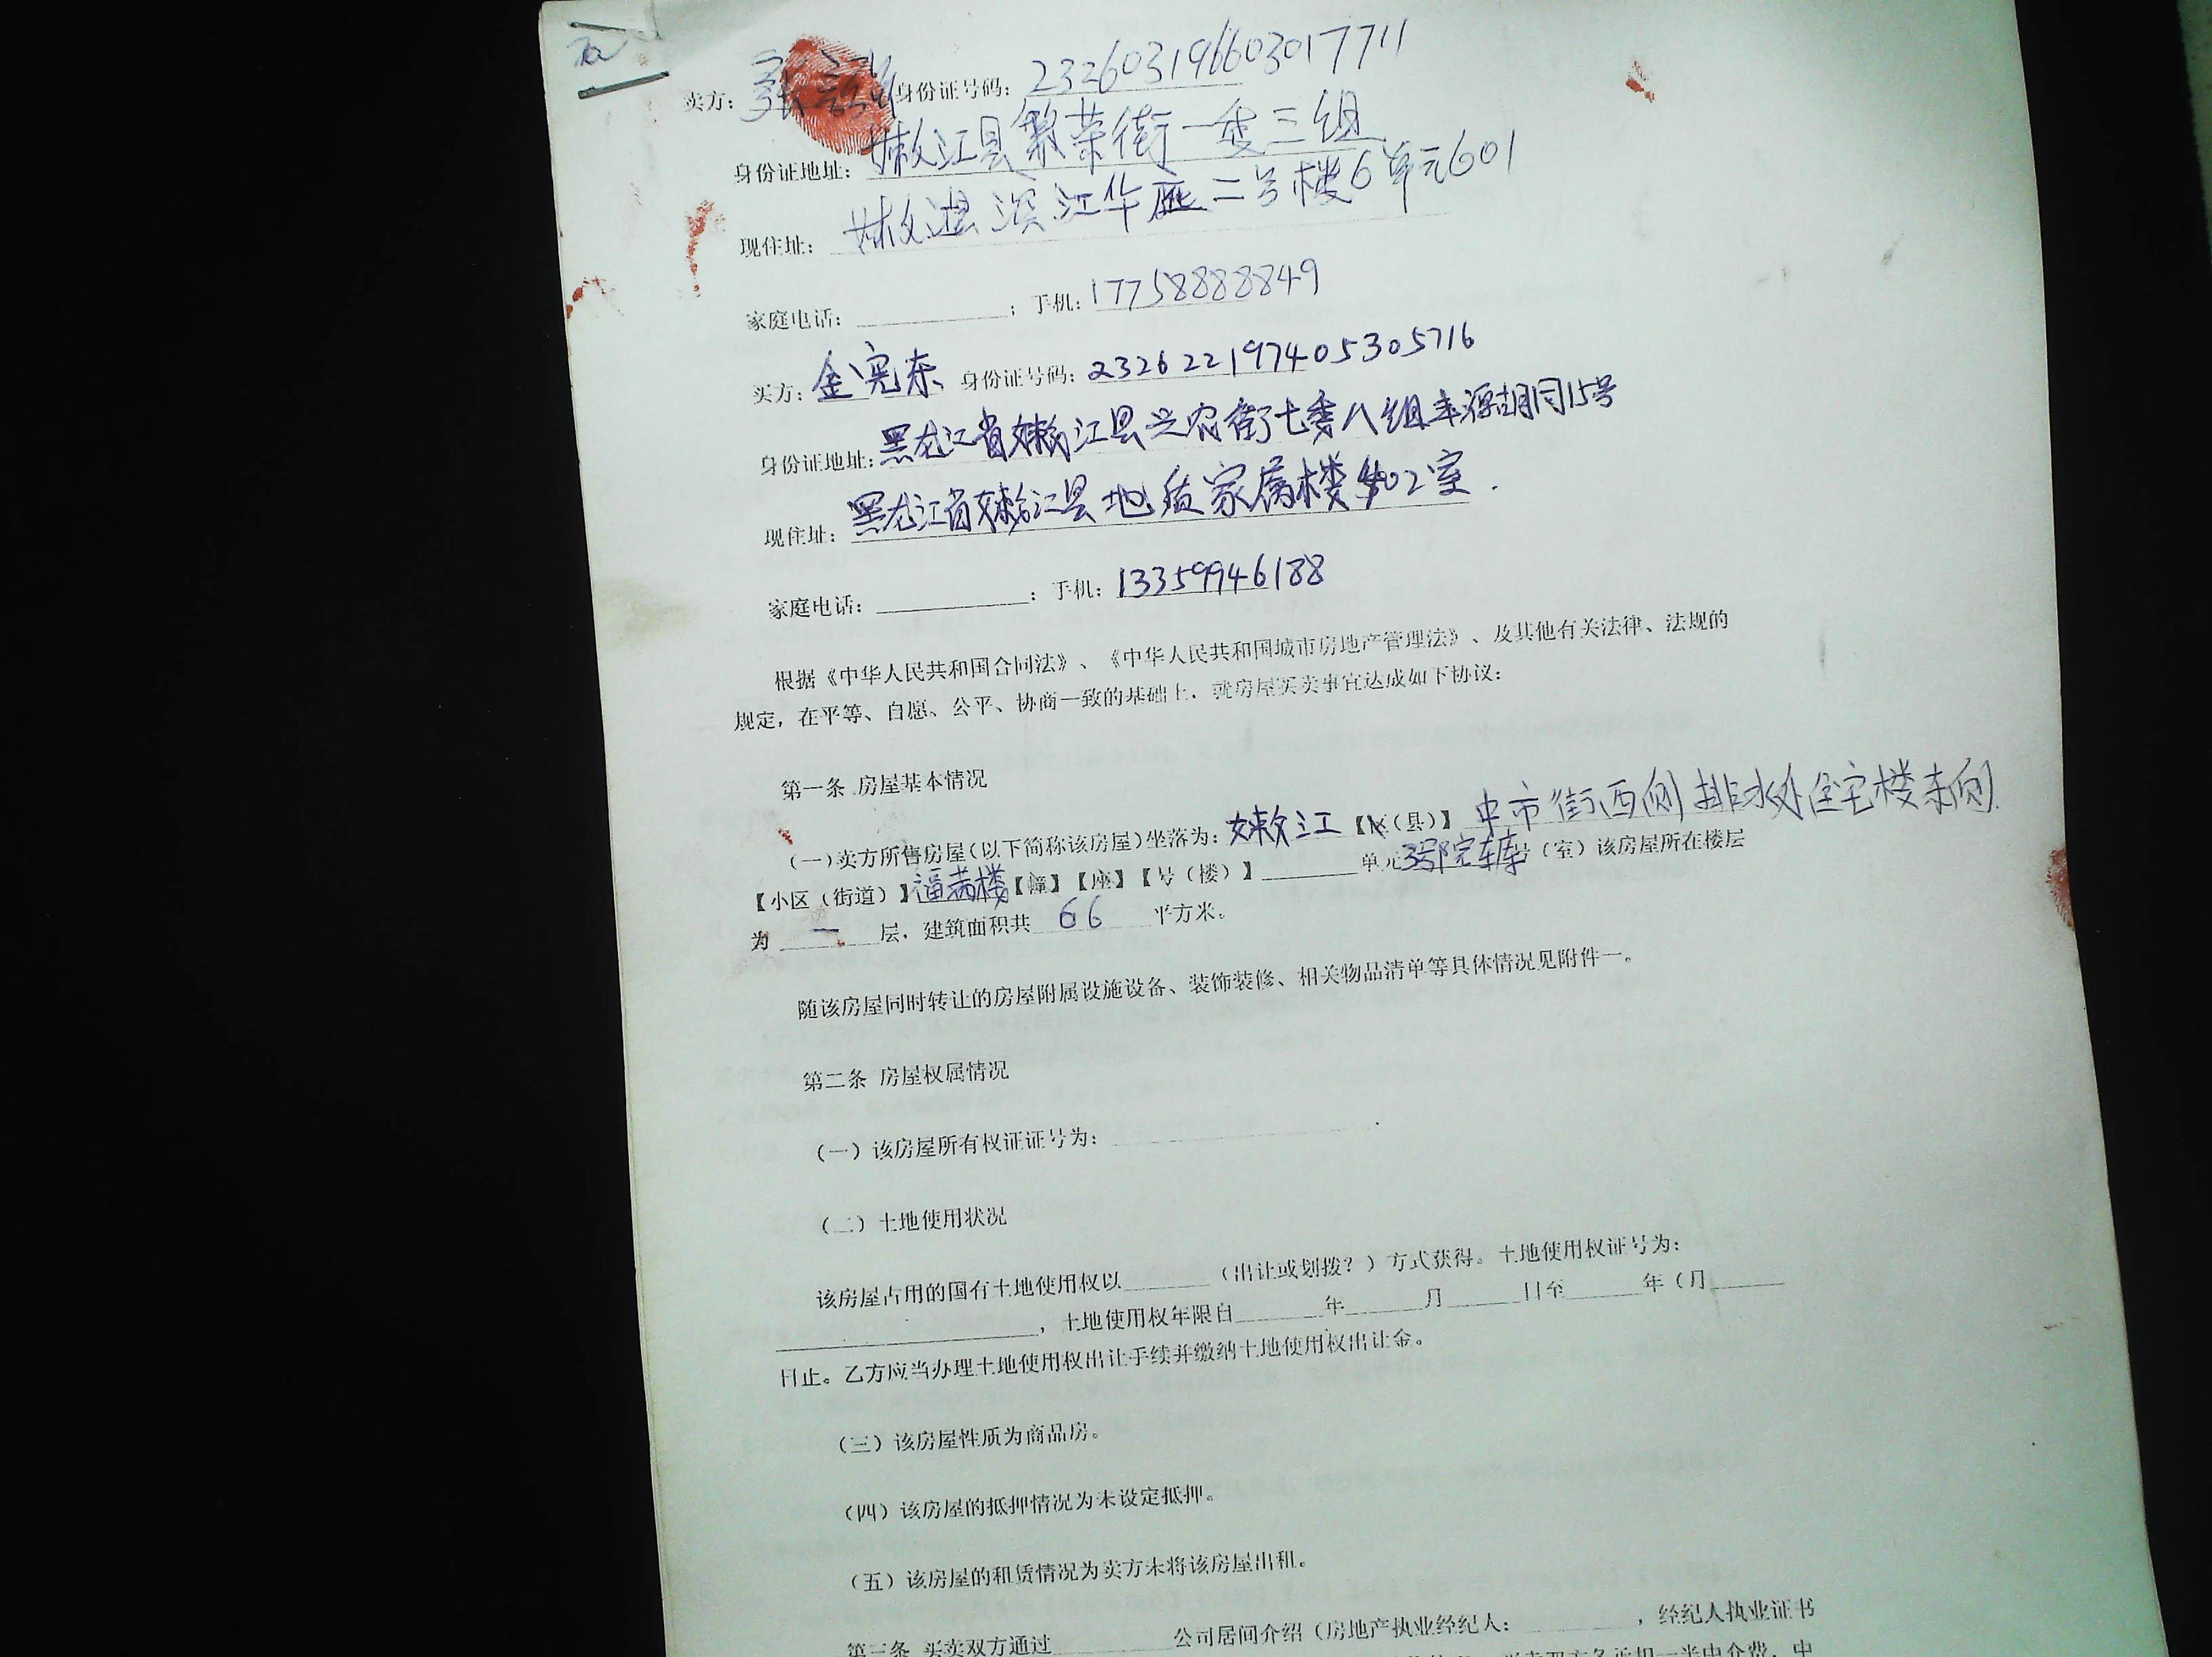 卖方： 张 身份证号码：232603196603017711
身份证地址：嫩江县繁荣街一委三组
现住址：嫩江县滨江华 二号楼6单元601
家庭电话：____；手机：17758888849
买方：金宪东 身份证号码：232622197405305716
身份证地址：黑龙江省嫩江县兴农街七委八组 源胡同15号
现住址：黑龙江省嫩江县地质家属楼402室.
家庭电话：____；手机：13359946188
根据《中华人民共和国合同法》、《中华人民共和国城市房地产管理法》、及其他有关法律、法规的
规定，在平等、自愿、公平、协商一致的基础上，就房屋买卖事宜达成如下协议：
第一条 房屋基本情况
（一）卖方所售房屋（以下简称该房屋）坐落为：嫩江【区（县）】中市街西侧排水外住宅楼东侧
【小区（街道）】 楼【幢】【座】【号（楼）】____单元3号院车库号（室）该房屋所在楼层
为一层，建筑面积共66平方米。
随该房屋同时转让的房屋附属设施设备、装饰装修、相关物品清单等具体情况见附件一。
第二条 房屋权属情况
（一）该房屋所有权证证号为：____
（二）土地使用状况
该房屋占用的国有土地使用权以____（出让或划拨？）方式获得。土地使用权证号为：
____，土地使用权年限自____年____月____日至____年（月____
日止。乙方应当办理土地使用权出让手续并缴纳土地使用权出让金。
（三）该房屋性质为商品房。
（四）该房屋的抵押情况为未设定抵押。
（五）该房屋的租赁情况为卖方未将该房屋出租。
第三条 买卖双方通过____公司居间介绍（房地产执业经纪人：____，经纪人执业证书